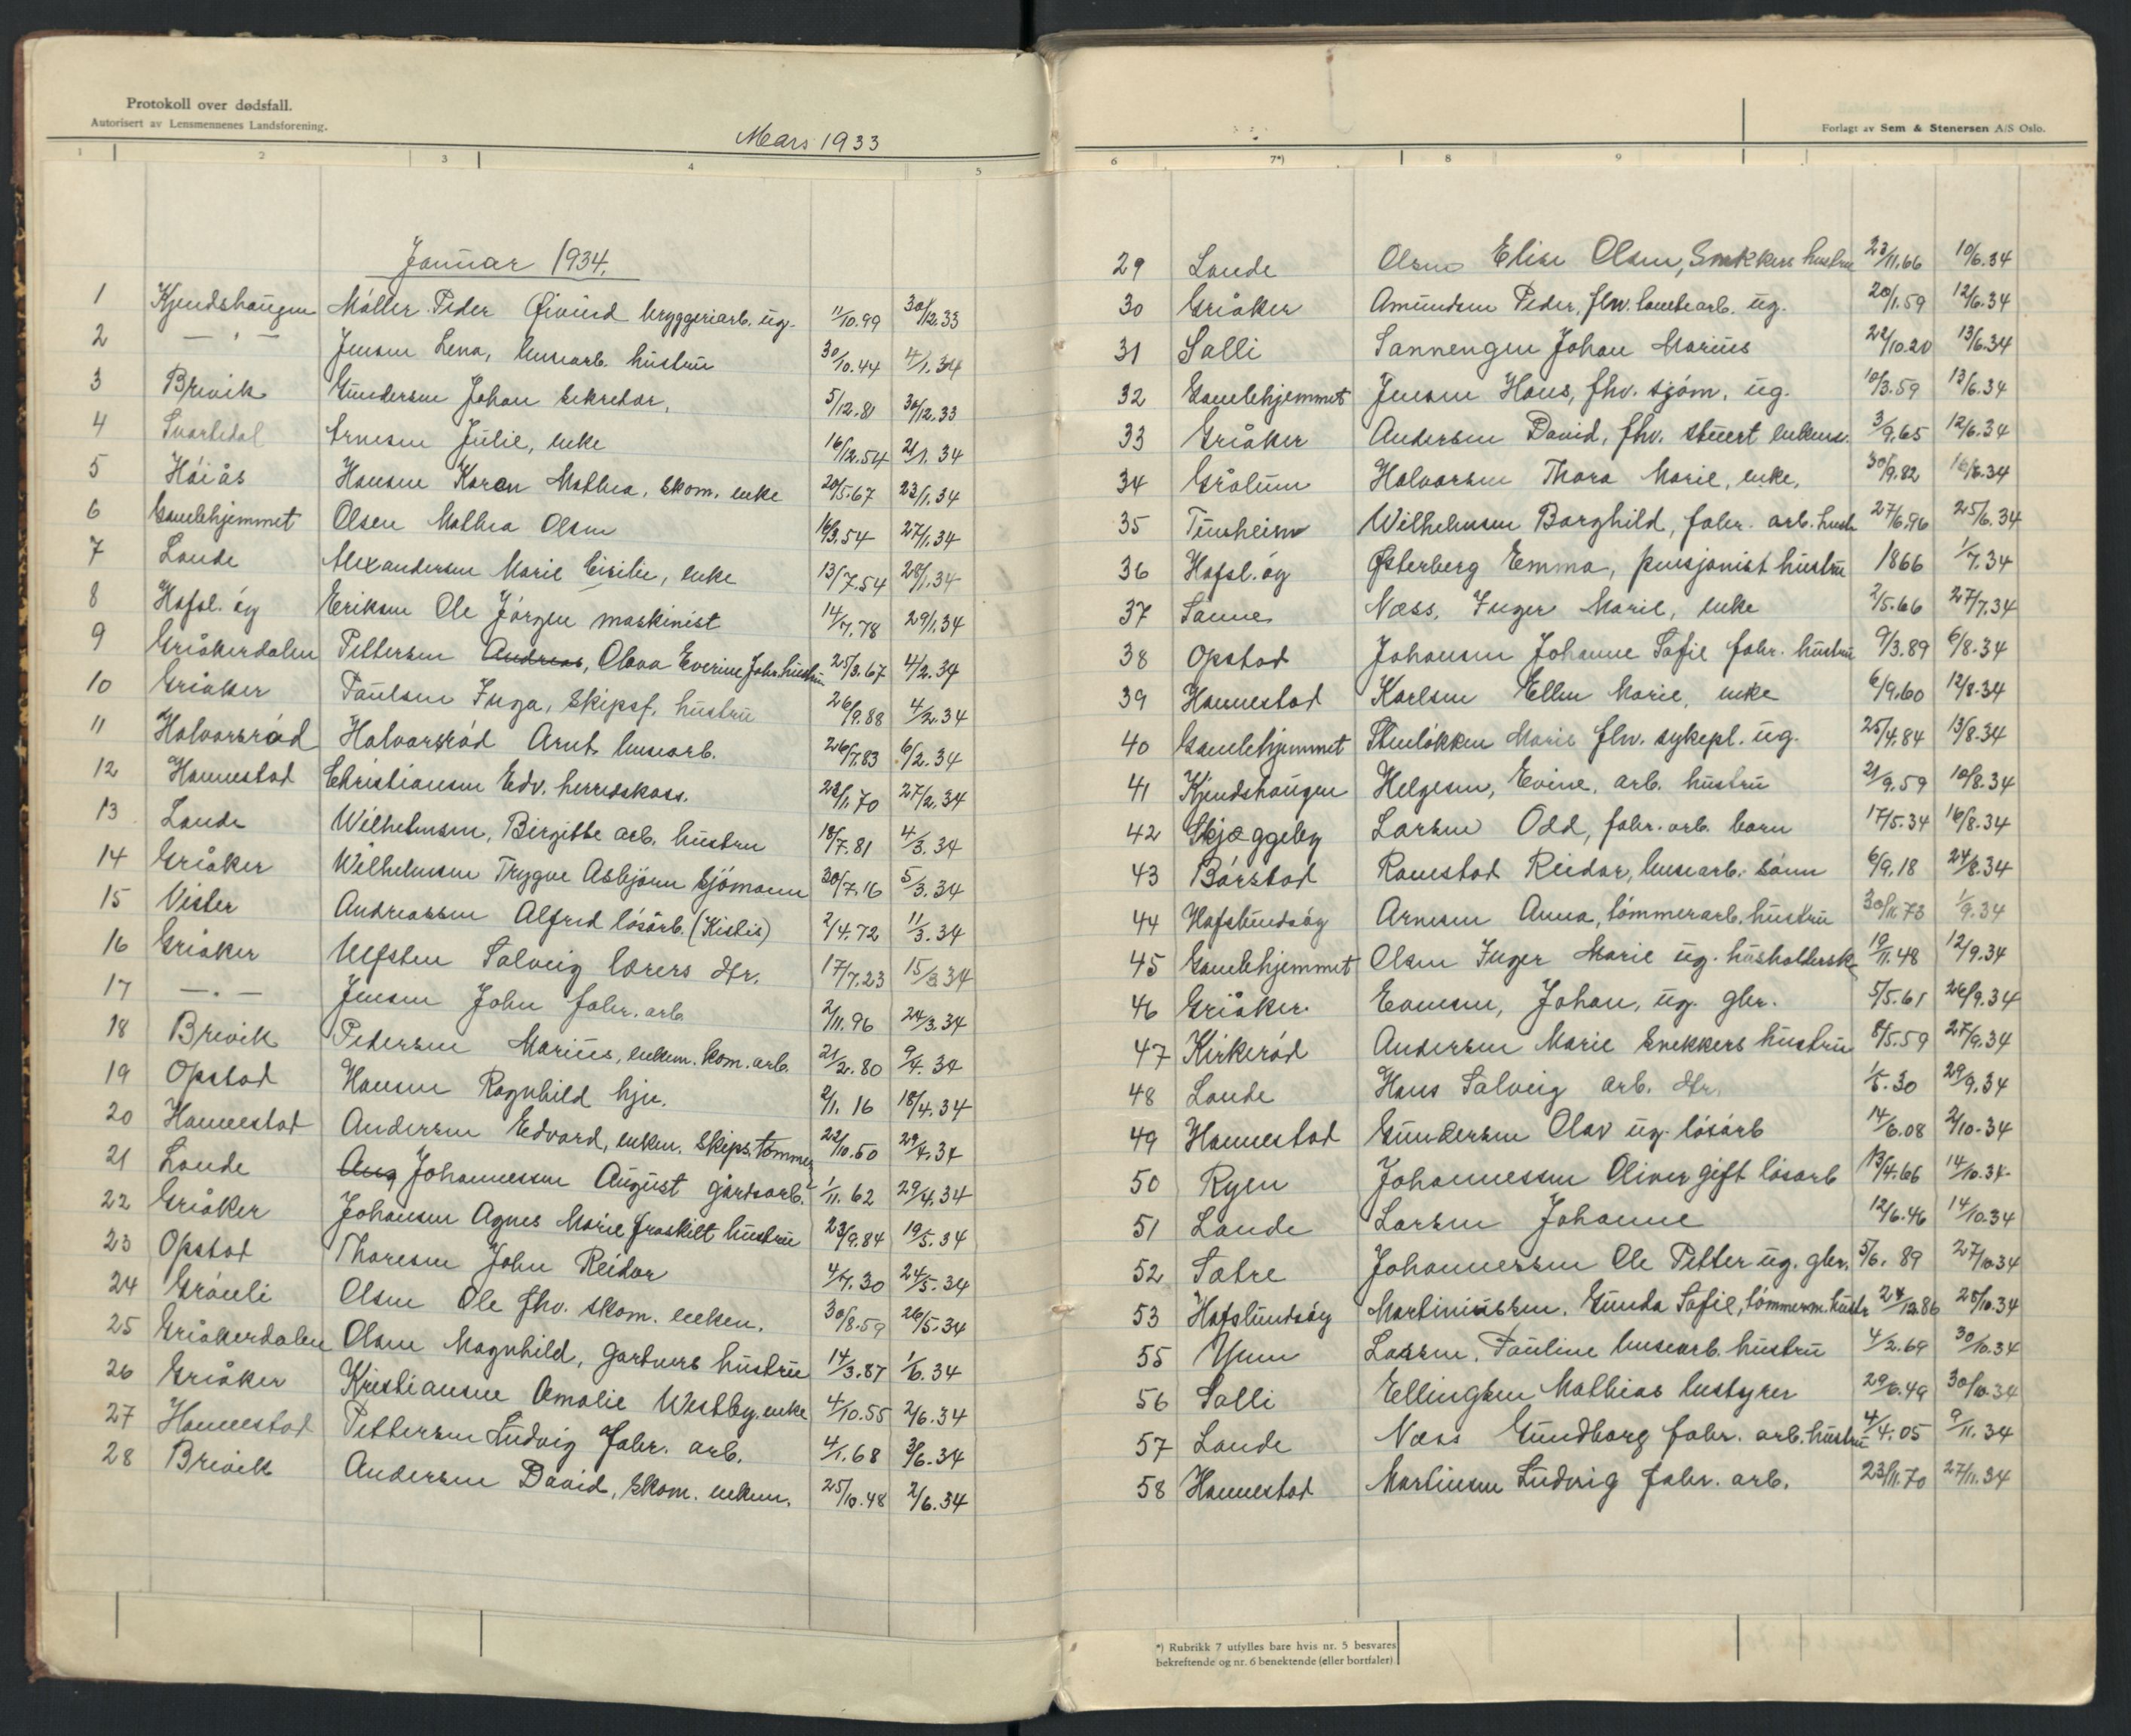 Protokoll over dødsfall.
Autorisert av Lensmennenes Landsforening.
Mars 1933
1 2 3 4 5
Januar 1934.
1 Kjendshaugen Møller Peder Øivind bryggeriarb. ug. 11/10.99 30/12.33
2 — " — Jensen Lena, huusarb. hustru 30/10.44 4/1.34
3 Brevik Gundersen Johan sekretær, 5/12.81 30/12.33
4 Svartedal Arnesen Julie, enke 16/12.54 21/1.34
5 Höiås Hansen Karen Mathea, skom. enke 20/5.67 23/1.34
6 Gamlehjemmet Olsen Mathea Olsen 16/3.54 27/1.34
7 Lande Alexandersen Marie Cicilie, enke 13/7.54 28/1.34
8 Hafsl. øy Eriksen Ole Jörgen maskinist 14/7.78 29/1.34
9 Gråkerdalen Pettersen Andreas, Olava Everine Fabr. hustru 25/3.67 4/2.34
10 Gråker Paulsen Inga, skipsf. hustru 26/9.88 4/2.34
11 Halvorsröd Halvorsröd Arnt huusarb. 26/7.83 6/2.34
12 Hannestad Christiansen Edv. herredskass. 28/11.70 27/2.34
13 Lande Wilhelmsen, Birgitte arb. hustru 18/7.81 4/3.34
14 Gråker Wilhelmsen Trygve Asbjörn Sjömann 30/7.16 5/3.34
15 Vister Andreassen Alfred lösarb. (Kistis) 2/4.72 11/3.34
16 Gråker Ulfsten Solveig lærers dtr. 17/7.23 15/3.34
17 —.— Jensen John fabr. arb. 2/11.96 24/3.34
18 Brevik Pedersen Marius, enkem. kom. arb. 21/2.80 9/4.34
19 Opstad Hansen Ragnhild hju. 2/1.16 18/4.34
20 Hannestad Andersen Edvard, enkem. Skipstömmer 22/10.50 29/4.34
21 Lande Aug Johannessen August gårdsarb. 1/11.62 29/4.34
22 Gråker Johansen Agnes Marie fraskilt hustru 23/9.84 19/5.34
23 Opstad Thoresen John Reidar 4/7.30 24/5.34
24 Gråuli Olsen Ole fhv. skom. enkem. 30/8.59 26/5.34
25 Gråkerdalen Olsen Magnhild, gartners hustru 14/3.87 1/6.34
26 Gråker Kristiansen Amalie Westby, enke 4/10.55 2/6.34
27 Hannestad Pettersen Ludvig Fabr. arb. 4/1.68 3/6.34
28 Brevik Andersen David, skom. enkem. 25/10.48 2/6.34
Forlagt av Sem & Stenersen A/S Oslo.
6 7*) 8 9
29 Lande Olsen Elise Olsen, Snekkers hustru 23/11.66 10/6.34
30 Gråker Amundsen Peder, fhv. tomtearb. ug. 20/1.59 12/6.34
31 Solli Sannengen Johan Marius 22/10.20 13/6.34
32 Gamlehjemmet Jensen Hans, fhv. sjöm. ug. 10/3.59 13/6.34
33 Gråker Andersen David, fhv. stuert enkem. 3/9.65 12/6.34
34 Grålum Halvorsen Thora Marie, enke, 30/9.82 16/6.34
35 Tunheim Wilhelmsen Borghild, fabr. arb. hustr 27/6.96 25/6.34
36 Hafsl. øy Østerberg Emma, pensjonist hustru 1866 1/7.34
37 Sanne Næss, Inger Marie, enke 2/5.66 27/7.34
38 Opstad Johansen Johanne Sofie fabr. hustru 9/3.89 6/8.34
39 Hannestad Karlsen Ellen Marie, enke 6/9.60 12/8.34
40 Gamlehjemmet Stenlökken Marie fhv. sykepl. ug. 25/4.84 13/8.34
41 Kjendshaugen Helgesen, Evine, arb. hustru 21/9.59 10/8.34
42 Skjæggeby Larsen Odd, fabr. arb. barn 17/5.34 16/8.34
43 Bårstad Ramstad Reidar, huusarb. sönn 6/9.18 24/8.34
44 Hafslundsöy Arnesen Anna, tömmerarb. hustru 30/11.73 1/9.34
45 Gamlehjemmet Olsen Inger Marie ug. husholdersk 19/11.48 12/9.34
46 Gråker Evensen, Johan, ug. gbr. 5/5.61 26/9.34
47 Kirkeröd Andersen Marie Snekkers hustru 8/5.59 27/9.34
48 Lande Hans Solveig arb. dtr. 1/5.30 29/9.34
49 Hannestad Gundersen Olav ug. lösarb 14/6.08 2/10.34
50 Ryen Johannessen Oliver gift lösarb 13/4.66 14/10.34
51 Lande Larsen Johanne 12/6.46 14/10.34
52 Sætre Johannessen Ole Petter ug. gbr. 5/6.89 27/10.34
53 Hafslundsöy Martiniussen, Gunda Sofie, tömmerm. hustr 24/12.86 28/10.34
55 Yven Larsen, Pauline huusarb. hustru 4/2.69 30/10.34
56 Solli Ellingsen Mathias bestyrer 29/6.49 30/10.34
57 Lande Næss Gundborg fabr. arb. hustru 4/4.05 9/11.34
58 Hannestad Martinsen Ludvig fabr. arb. 23/11.70 27/11.34
*) Rubrikk 7 utfylles bare hvis nr. 5 besvares
bekreftende og nr. 6 benektende (eller bortfaler).